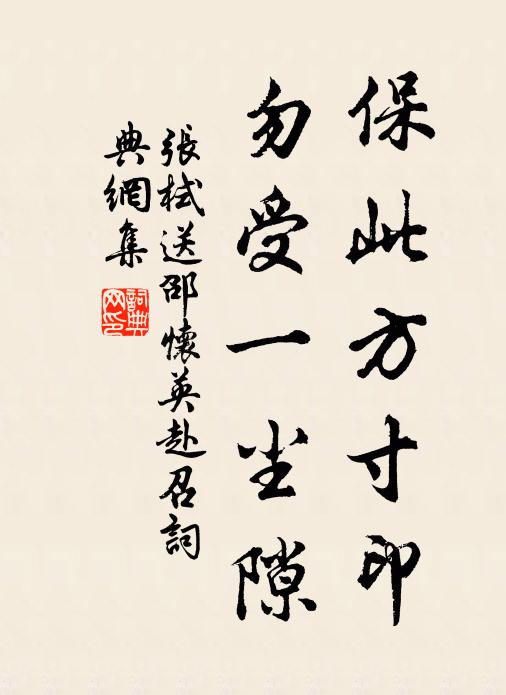 保此方寸印
勿受一尘隙
張栻送邵懷英赴召詞
典網集
詞典网印